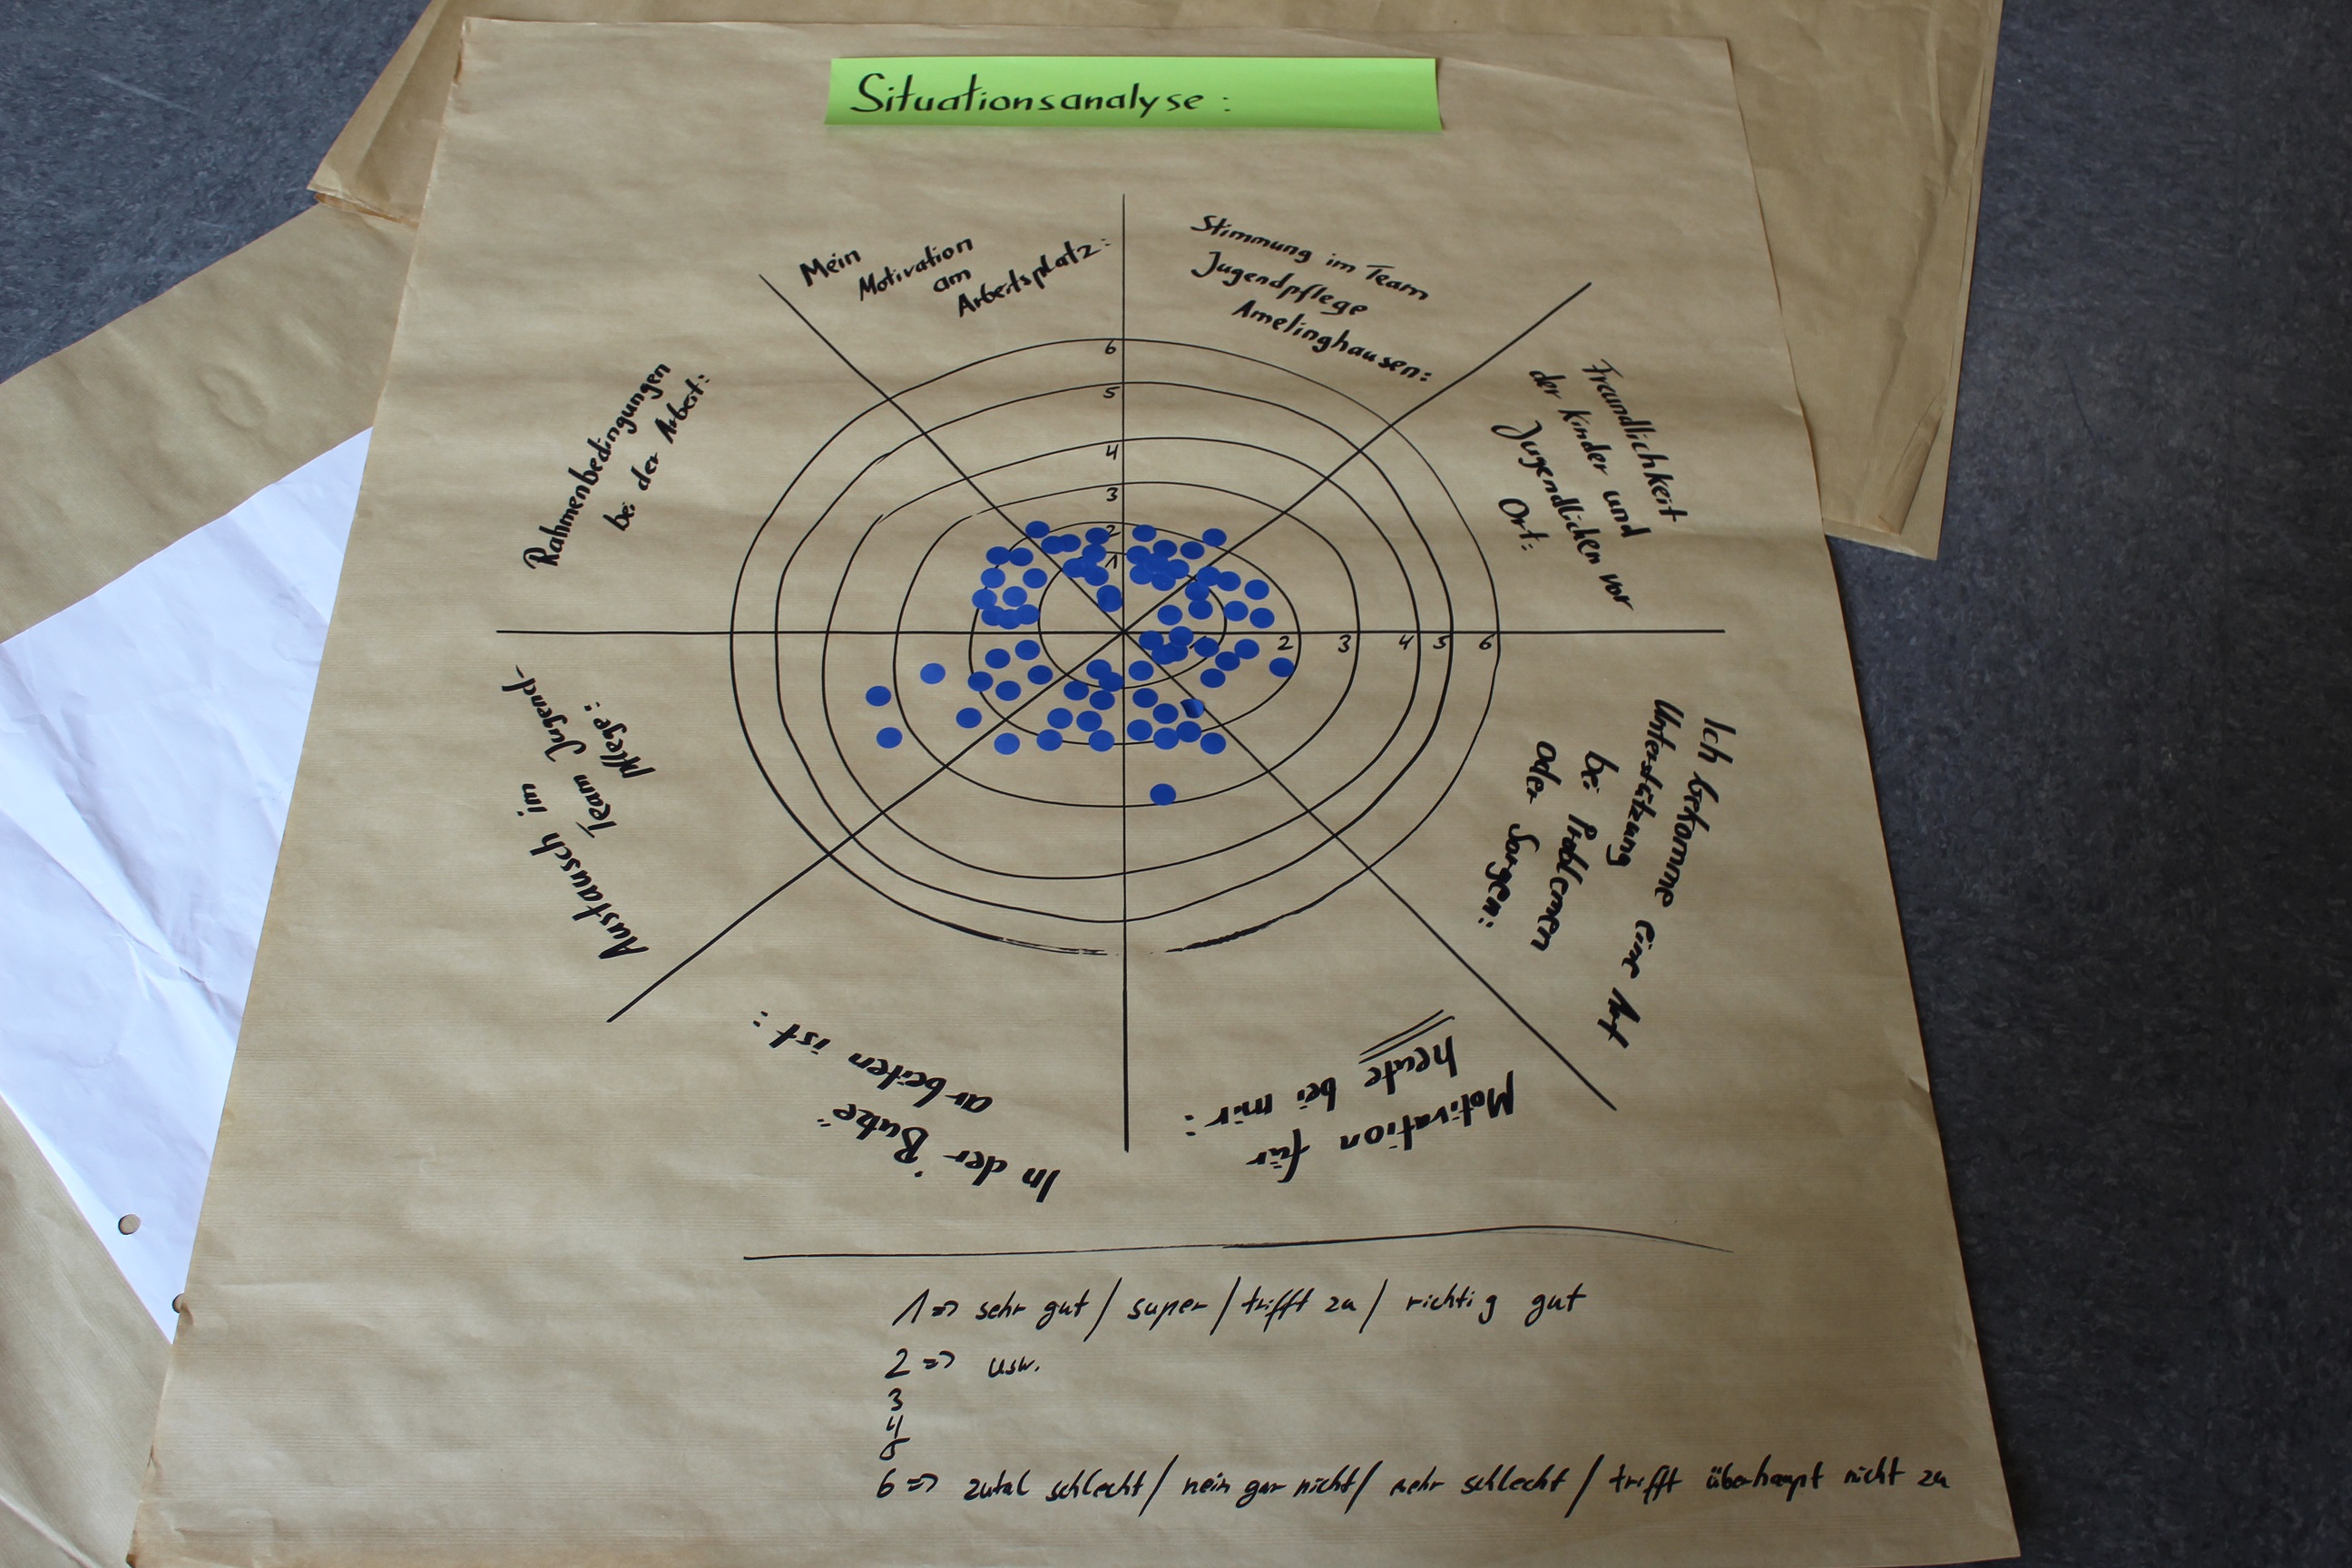 Situationsanalyse:
Mein
Motivation
am
Arbeitsplatz:
Stimmung im Team
Jugendpflege
Amelinghausen:
Fraundlichkeit
der Kinder und
Jugendlichen vor
Ort:
Ich bekomme eine Art
Unterstützung
bei Problemen
oder Sorgen:
Motivation für
heute bei mir:
In der "Butze"
arbeiten ist:
Austausch im
Team Jugend-
pflege:
Rahmenbedingungen
bei der Arbeit:
6
5
4
3
2
1
2 3 4 5 6
1 => sehr gut / super / trifft zu / richtig gut
2 => usw.
3
4
5
6 => zutal schlecht / nein gar nicht / sehr schlecht / trifft überhaupt nicht zu